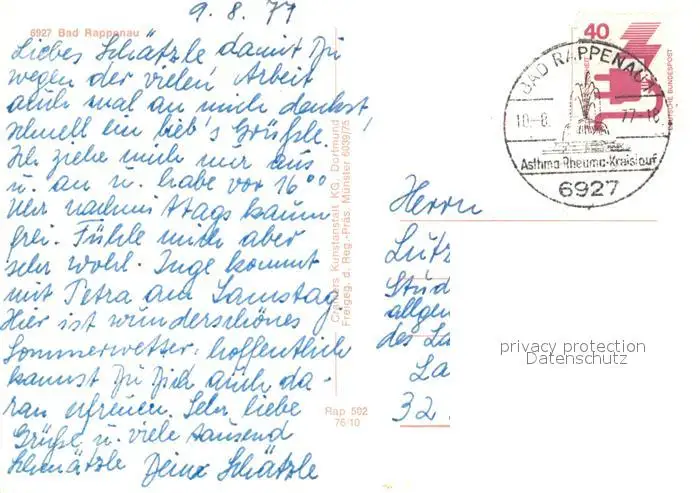 9. 8. 77
6927 Bad Rappenau
Liebes Schätzle damit Du
wegen der vielen Arbeit
auch mal an mich denkst,
schnell ein lieb's Grüßle.
Ich ziehe mich nur aus
u. an u. habe vor 16°°
Uhr nachmittags kaum
frei. Fühle mich aber
sehr wohl. Inge kommt
mit Petra am Samstag.
Hier ist wunderschönes
Sommerwetter, hoffentlich
kannst Du Dich auch da-
ran erfreuen. Sehr liebe
Grüße u. viele tausend
Schmätzle Deine Schätzle
Cramers Kunstanstalt KG, Dortmund
Freigeg. d. Reg.-Präs. Münster 6039/75
Rap 502
76/10
40
DEUTSCHE BUNDESPOST
BAD RAPPENAU 1
10.-8. 77-18
Asthma-Rheuma-Kreislauf
6927
Herrn
Lutz
Stud
allgem
des La
La
32
privacy protection
Datenschutz